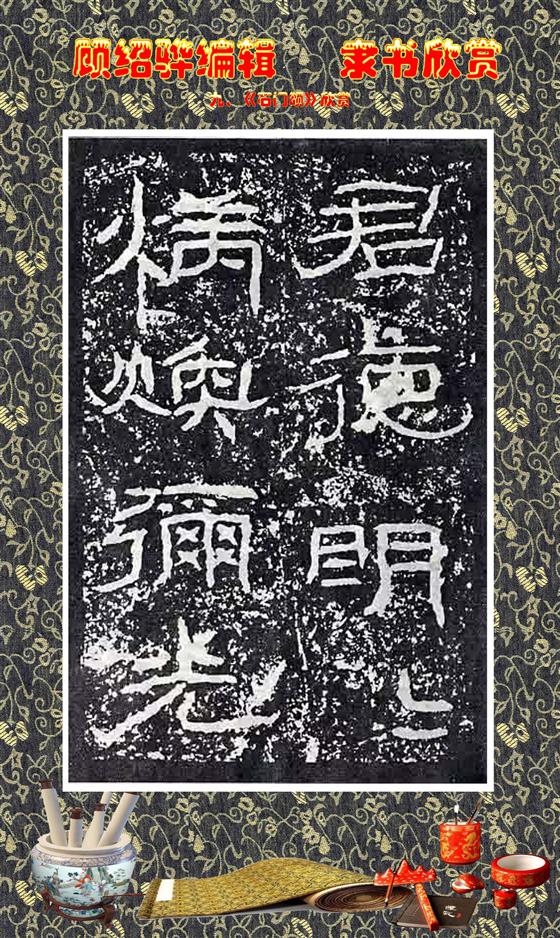 顾绍骅编辑 隶书欣赏
九、《石门颂》欣赏
君德明二
炳煥彌光